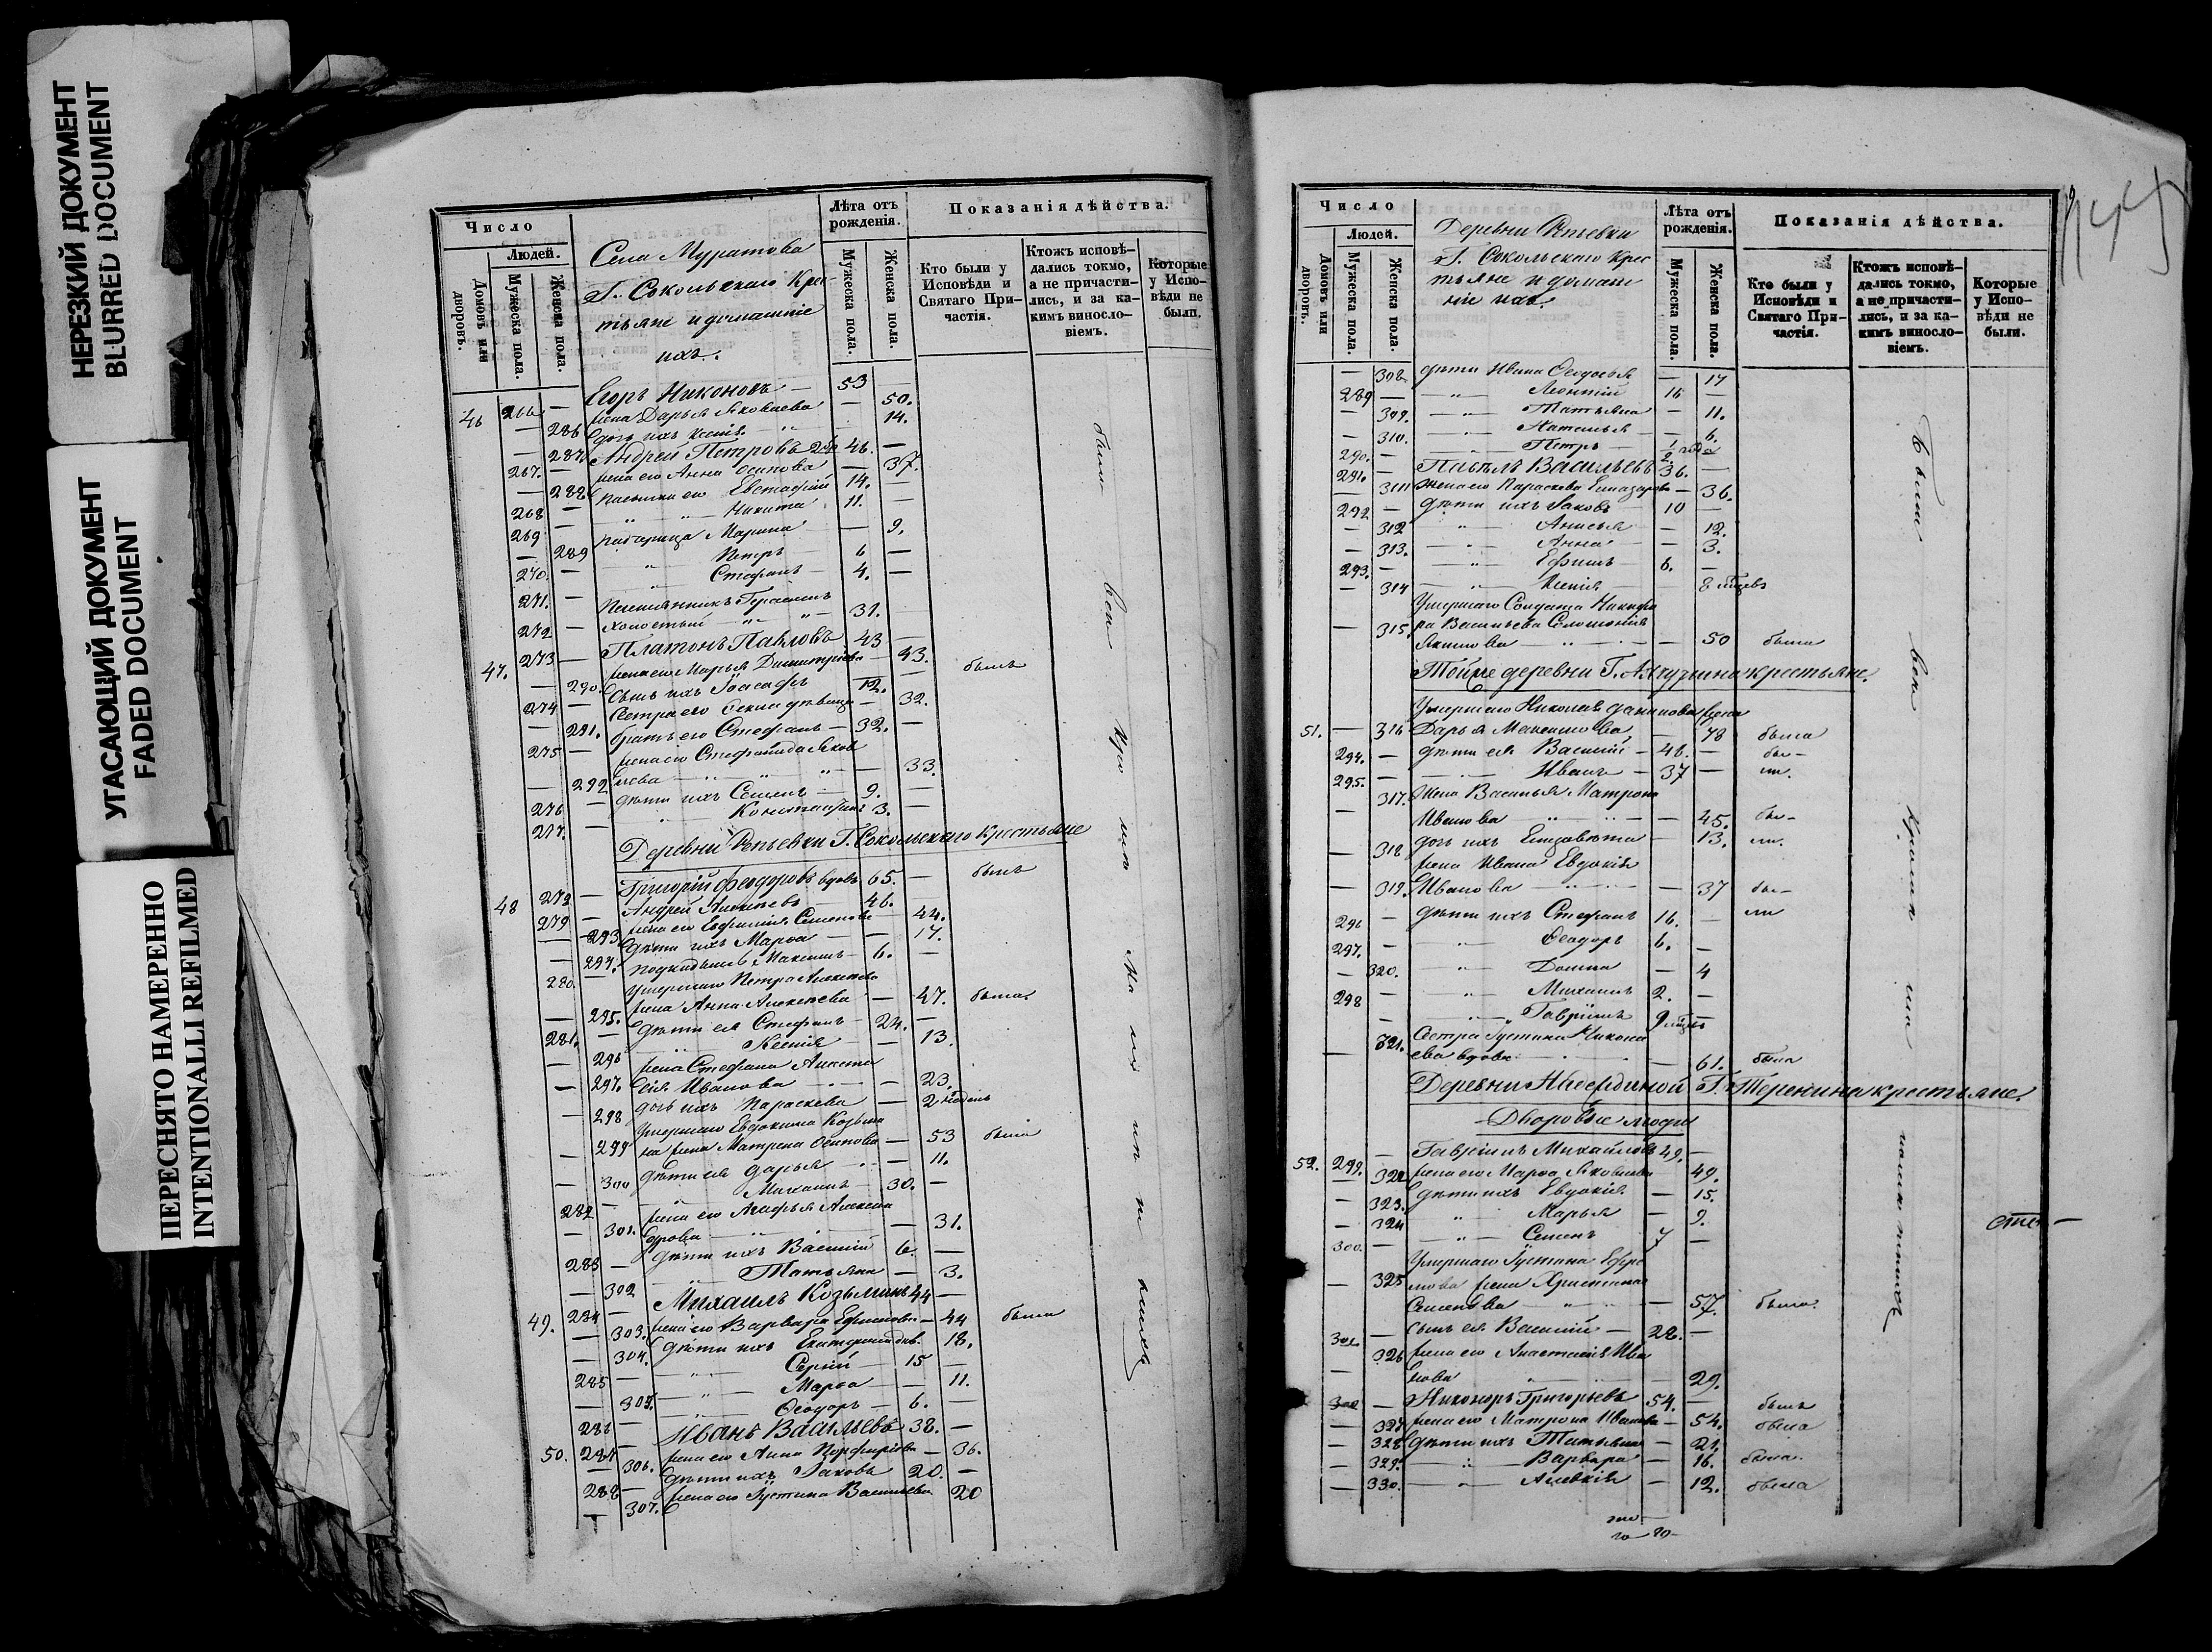 НЕРЕЗКИЙ ДОКУМЕНТ
BLURRED DOCUMENT
УГАСАЮЩИЙ ДОКУМЕНТ
FADED DOCUMENT
ПЕРЕСНЯТО НАМЕРЕННО
INTENTIONALLI REFILMED
Число
Людей.
Домовъ или дворовъ.
Мужеска пола.
Женска пола.
Села Муратова
Г. Сокольскаго Кре-
стьяне и домашніе
ихъ.
Лѣта отъ рожденія.
Мужеска пола.
Женска пола.
Показанія дѣйства.
Кто были у Исповѣди и Святаго Причастія.
Ктожъ исповѣ-
дались токмо,
а не причасти-
лись, и за ка-
кимъ винословіемъ.
Которые у Исповѣди не были.
46 266 — Егоръ Никоновъ — 53 —
— 286 жена Дарья Яковлева — 50.
— 287 дочь ихъ Ксенія 14.
267. — Андрей Петровъ 46. —
— 288 жена его Анна Осипова — 37.
268 — Евстафій 14. —
269 — Никита 11. —
— 289 Марина — 9.
270. — Петръ 6 —
271. — Стефанъ 4. —
Племянникъ Герасимъ
272 — холостый 31. —
47. 273 — Платонъ Павловъ 43 —
— 290. жена его Марья Димитріева — 43. былъ
274 — Сынъ ихъ Іоасафъ 12. —
— 291. Сестра его Ѳекла дѣвица — 32.
275 — братъ его Стефанъ — 32. —
жена его Стефанида Яков
— 292 лева — 33.
276 — дѣти ихъ Семенъ 9. —
277. — Константинъ 3. —
Деревни Репьевки Г. Сокольскаго крестьяне
48 278 — Григорій Феодоровъ вдовъ 65. — былъ
279 — Андрей Алексѣевъ 46. —
— 293 жена его Евфимія Семенова — 44.
— 294. дѣти ихъ Марѳа — 17.
280. — подкидышъ Максимъ 6. —
Умершаго Петра Алексѣева
— 295. жена Анна Алексѣева — 47. была.
281. — дѣти ея Стефанъ 24. —
— 296 Ксенія — 13.
жена Стефана Анаста
— 297. сія Иванова — 23.
— 298 дочь ихъ Параскева — 2 недѣль
Умершаго Евдокима Козьми
— 299 на жена Матрена Осипова — 53 была
— 300 дѣти ея Дарья — 11.
282 — Михаилъ 30. —
жена его Агафья Алексан
— 301. дрова — 31.
283 — дѣти ихъ Василій 6. —
— 302 Татьяна — 3.
49. 284 — Михаилъ Козьминъ 44 —
— 303. жена его Варвара Ефимова — 44 была
— 304. дѣти ихъ Екатерина дѣв. 18.
285 — Сергій 15 —
— 305. Марѳа — 11.
286 — Ѳеодоръ 6. —
50. 287 — Иванъ Васильевъ 38. —
— 306. жена его Анна Порфирьева — 36.
288 — дѣти ихъ Іаковъ 20. —
— 307. жена его Іустина Васильева 20
были все кро
Число
Людей.
Домовъ или дворовъ.
Мужеска пола.
Женска пола.
Деревни Репьевки
Г. Сокольскаго крес
тьяне и домаш
ніе ихъ
Лѣта отъ рожденія.
Мужеска пола.
Женска пола.
Показанія дѣйства.
Кто были у Исповѣди и Святаго Причастія.
Ктожъ исповѣ-
дались токмо,
а не причасти-
лись, и за ка-
кимъ винословіемъ.
Которые у Исповѣди не были.
144
— 308 дѣти Ивана Ѳеодосья — 17
289 — Леонтій 15 —
— 309. Татьяна — 11.
— 310. Наталья — 6.
290. — Петръ 1/2 года
291. — Павелъ Васильевъ 36. —
— 311 жена его Параскева Елиазарова — 36.
292 — дѣти ихъ Іаковъ 10 —
— 312 Анисья — 12.
— 313. Анна — 3.
293. — Ефимъ 6. —
— 314 Ксенія 8 мѣсяцевъ
Умершаго Солдата Никифо
— 315. ра Васильева Соломонія
Якимова — 50 была
Тойже деревни крестьяне.
Умершаго Николая Данилова жена
51. — 316 Дарья Максимова — 78 была
294. — дѣти ея Василій — 46. — бы-
295. — Иванъ — 37 — ли.
— 317. Жена Василья Матрона
Иванова — 45. бы-
— 318 дочь ихъ Елизавета — 13. ли.
жена Ивана Евдокія
— 319. Иванова — 37 бы-
296 — дѣти ихъ Стефанъ 16. — ли
297. — Ѳеодоръ 6. —
— 320. Домна — 4
298 — Михаилъ 2. —
Гавріилъ 9
321. Сестра Іустина Никола
ева вдова — 61. была
Деревни Г. Теренина крестьяне.
Дворовые люди
52. 299. — Гавріилъ Михайловъ 49. —
— 322 жена его Марѳа Яковлева 49.
— 323. дѣти ихъ Евдокія — 15.
— 324 Марья — 9.
300. — Семенъ 7 —
Умершаго Іустина Ефре
— 325 мова жена Христина
Семенова — 57. была.
301 — сынъ ея Василій — 28. —
326 жена его Анастасія Ива
нова 29.
302 — Никоноръ Григорьевъ 54. — былъ
— 327 жена его Матрона Иванова — 54. была
— 328 дѣти ихъ Татьяна — 21.
— 329. Варвара — 16. была.
— 330. — 12. была
были все кроме